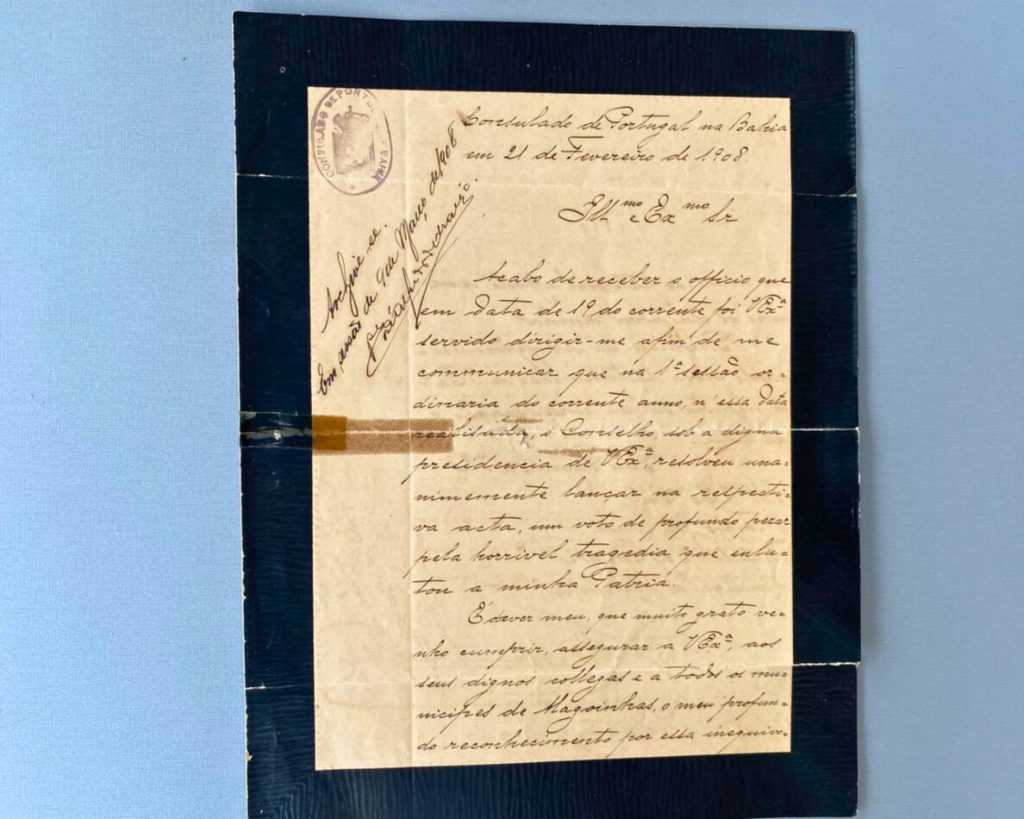 CONSULADO DE PORTUGAL BAHIA
Consulado de Portugal na Bahia
em 21 de Fevereiro de 1908.
Ill mo e Ex mo Sr
Archive-se.
Em sessão de 9 de Março de 1908
Acabo de receber o officio que
em data de 19 do corrente foi VExª
servido dirigir-me afim de me
communicar que na 1ª sessão or-
dinaria do corrente anno, n'essa data
realisada, o Conselho, sob a digna
presidencia de VExª, resolveu una-
nimemente lançar na respecti-
va acta, um voto de profundo pezar
pela horrivel tragedia que enlu-
tou a minha Patria.
É dever meu, que muito grato ve-
nho cumprir, assegurar a VExª, aos
seus dignos collegas e a todos os mu-
nicipes de Alagoinhas, o meu profun-
do reconhecimento por essa inequivo-